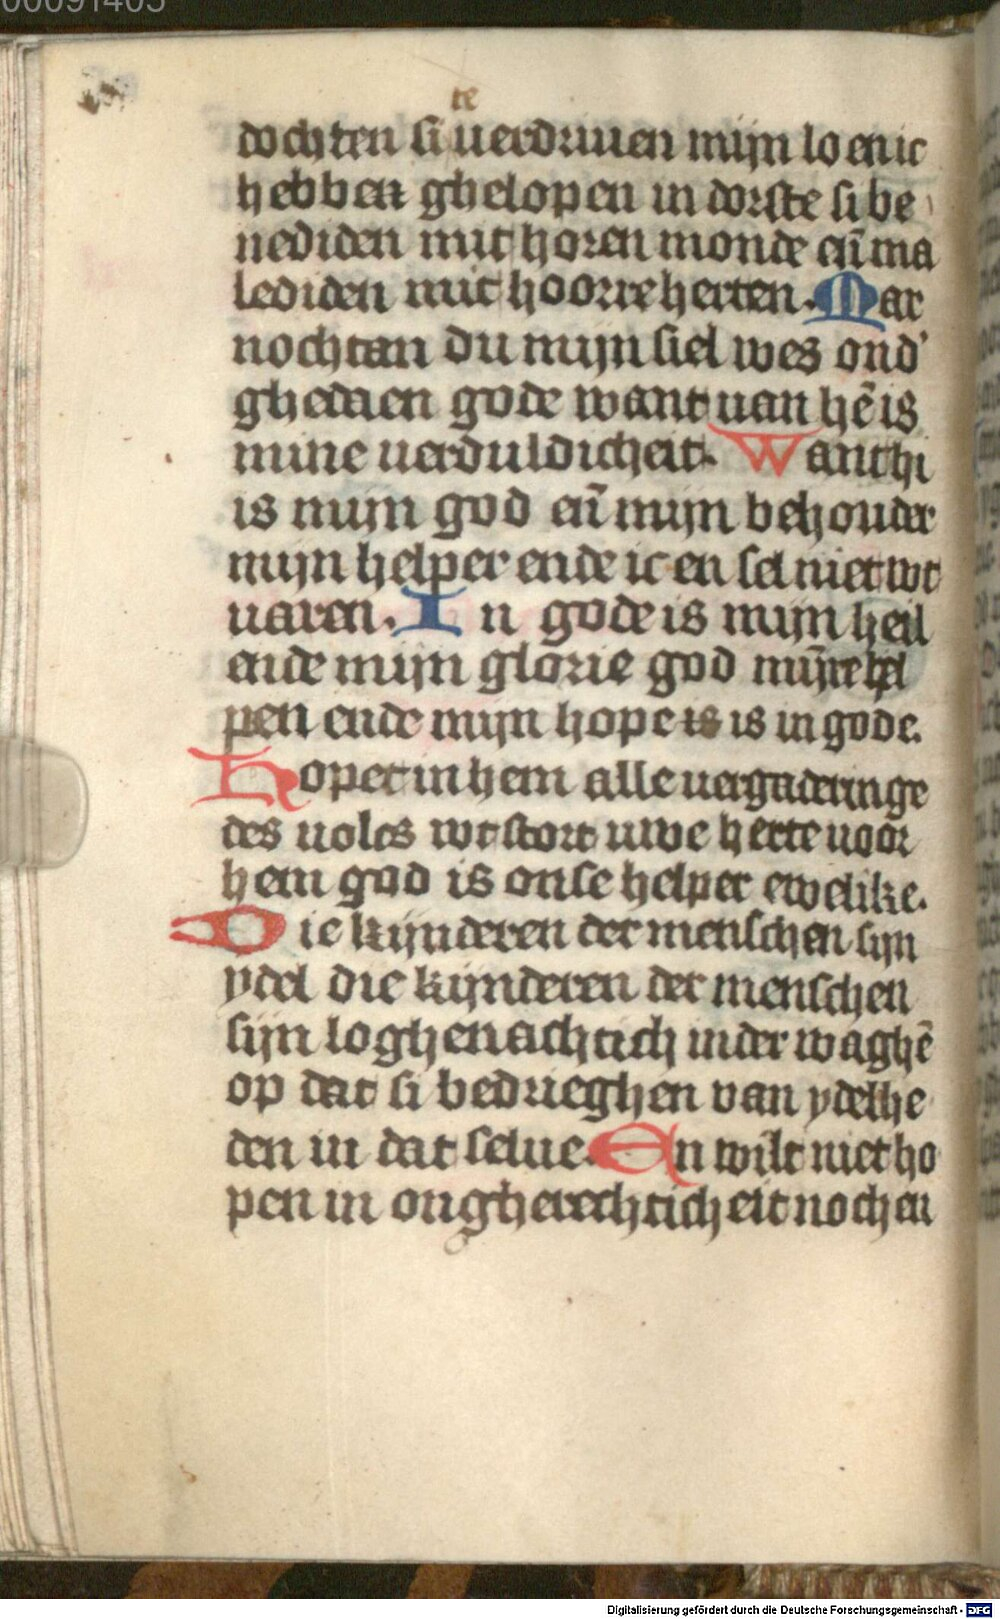 00091405
te
dochten si verdriuen mijn lo en ic
hebben ghelopen in dorste si be
nediden mit horen monde eñ ma
lediden mit hoorre herten. Mar
nochtan du mijn siel wes ond'
ghedaen gode want uan hē is
mine uerduldicheit. Want hi
is mijn god eñ mijn behouder
mijn helper ende ic en sel niet wt
uaren. In gode is mijn heil
ende mijn glorie god mijnre hel
pen ende mijn hope is is in gode.
Hopet in hem alle uergaderinge
des uolcs wtstort uwe herte uoor
hem god is onse helper ewelike.
Die kijnderen der menschen sijn
ydel die kijnderen der menschen
sijn loghenachtich inder waghē
op dat si bedrieghen van ydelhe
den in dat selue. En wilt niet ho
pen in ongherechticheit noch en
Digitalisierung gefördert durch die Deutsche Forschungsgemeinschaft - DFG